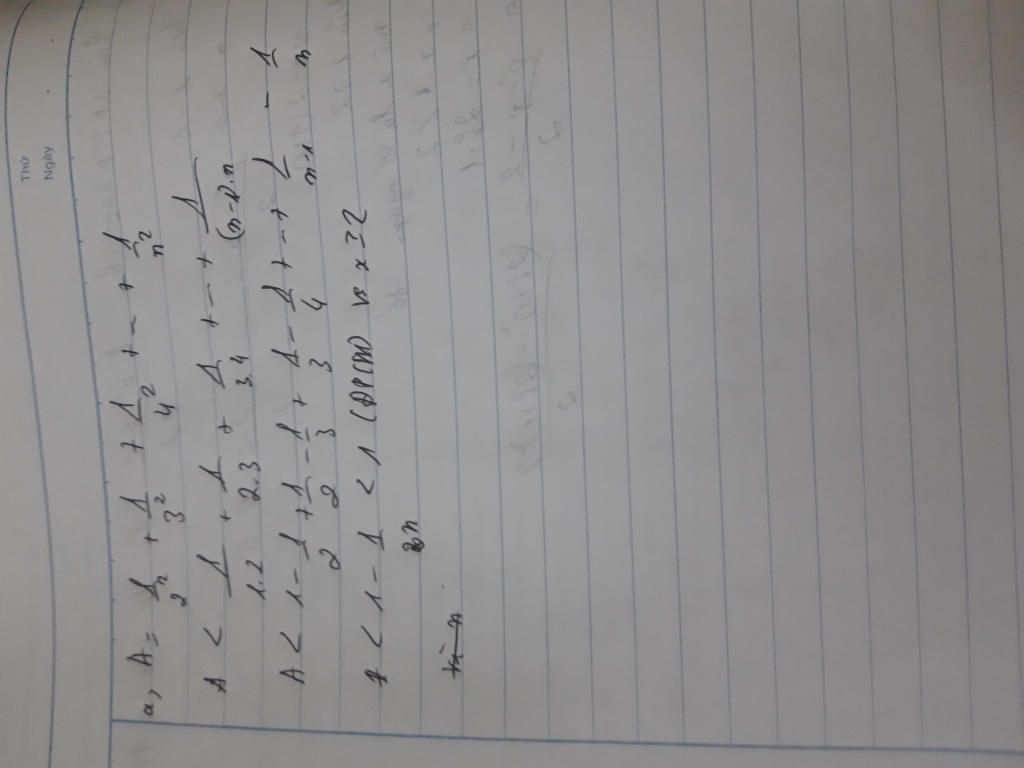 Thứ
Ngày
a, A = 1/2² + 1/3² + 1/4² + - + 1/n²
A < 1/1.2 + 1/2.3 + 1/3.4 + - + 1/(n-1).n
A < 1 - 1/2 + 1/2 - 1/3 + 1/3 - 1/4 + - + 1/n-1 - 1/n
A < 1 - 1/n < 1 (ĐPCM)